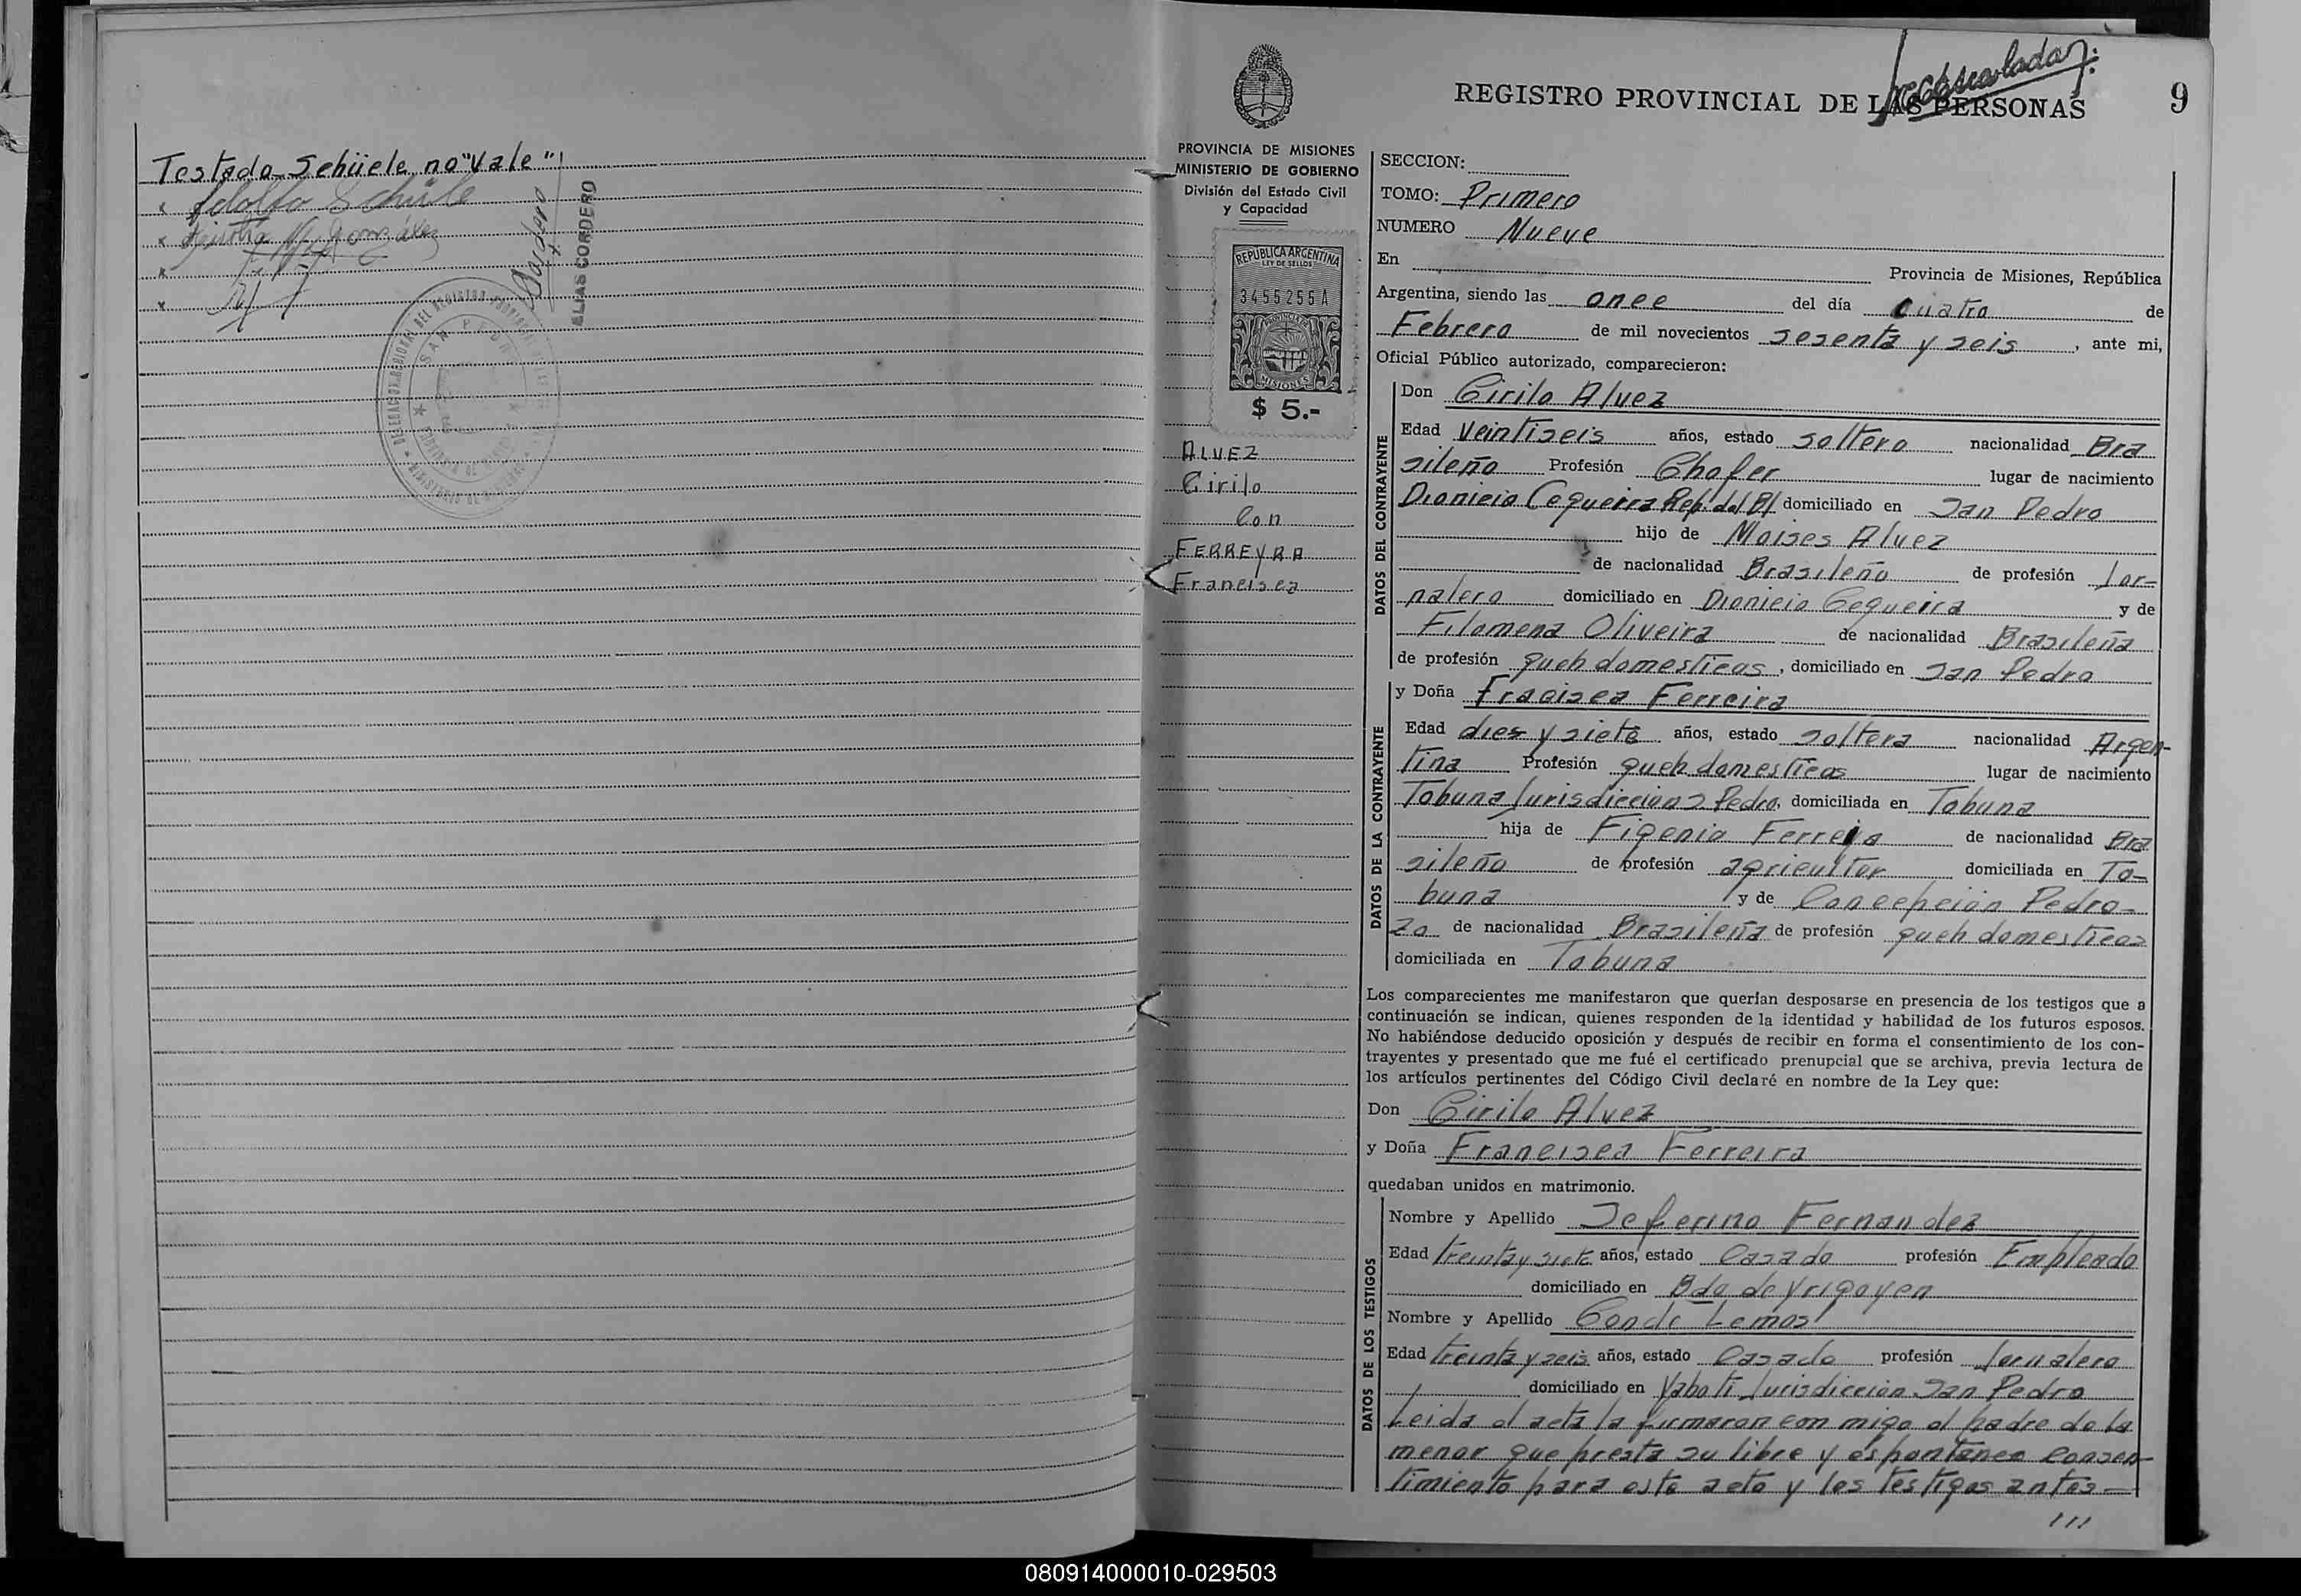 Testado Schüele no "Vale"
Adolfo Schüle
González
Cordero
ELIAS CORDERO
SAN PEDRO
REGISTRO PROVINCIAL DE LAS PERSONAS
9
PROVINCIA DE MISIONES
MINISTERIO DE GOBIERNO
División del Estado Civil
y Capacidad
REPUBLICA ARGENTINA
LEY DE SELLOS
3455255 A
PROVINCIA DE
MISIONES
$ 5.-
ALVEZ
Cirilo
Con
FERREYRA
Francisca
SECCION:
TOMO: Primero
NUMERO Nueve
En Provincia de Misiones, República
Argentina, siendo las once del día cuatro de
Febrero de mil novecientos sesenta y seis, ante mi,
Oficial Público autorizado, comparecieron:
DATOS DEL CONTRAYENTE
Don Cirilo Alvez
Edad Veintiseis años, estado soltero nacionalidad Bra
sileño Profesión Chofer lugar de nacimiento
Dionicio Cequeira Rep. del Bl domiciliado en San Pedro
hijo de Moises Alvez
de nacionalidad Brasileño de profesión Jor-
nalero domiciliado en Dionicio Cequeira y de
Filomena Oliveira de nacionalidad Brasileña
de profesión queh domesticos, domiciliado en San Pedro
DATOS DE LA CONTRAYENTE
y Doña Fracisca Ferreira
Edad dies y siete años, estado soltera nacionalidad Argen-
tina Profesión queh domesticos lugar de nacimiento
Tobuna Jurisdiccion S Pedro, domiciliada en Tobuna
hija de Figenio Ferreja de nacionalidad Bra
sileño de profesión agricultor domiciliada en To-
buna y de Concepción Pedro-
zo de nacionalidad Brasileña de profesión queh domesticos
domiciliada en Tobuna
Los comparecientes me manifestaron que querían desposarse en presencia de los testigos que a
continuación se indican, quienes responden de la identidad y habilidad de los futuros esposos.
No habiéndose deducido oposición y después de recibir en forma el consentimiento de los con-
trayentes y presentado que me fué el certificado prenupcial que se archiva, previa lectura de
los artículos pertinentes del Código Civil declaré en nombre de la Ley que:
Don Cirilo Alvez
y Doña Francisca Ferreira
quedaban unidos en matrimonio.
DATOS DE LOS TESTIGOS
Nombre y Apellido Seferino Fernandez
Edad treinta y siete años, estado Casado profesión Empleado
domiciliado en Bdo de Yrigoyen
Nombre y Apellido Conde Lemos
Edad treinta y seis años, estado Casado profesión Jornalero
domiciliado en Yaboti Jurisdicción San Pedro
Leida el acta la firmaron con migo el padre de la
menor que presta su libre y espontaneo consen-
timiento para este acto y los testigos antes-
///
080914000010-029503